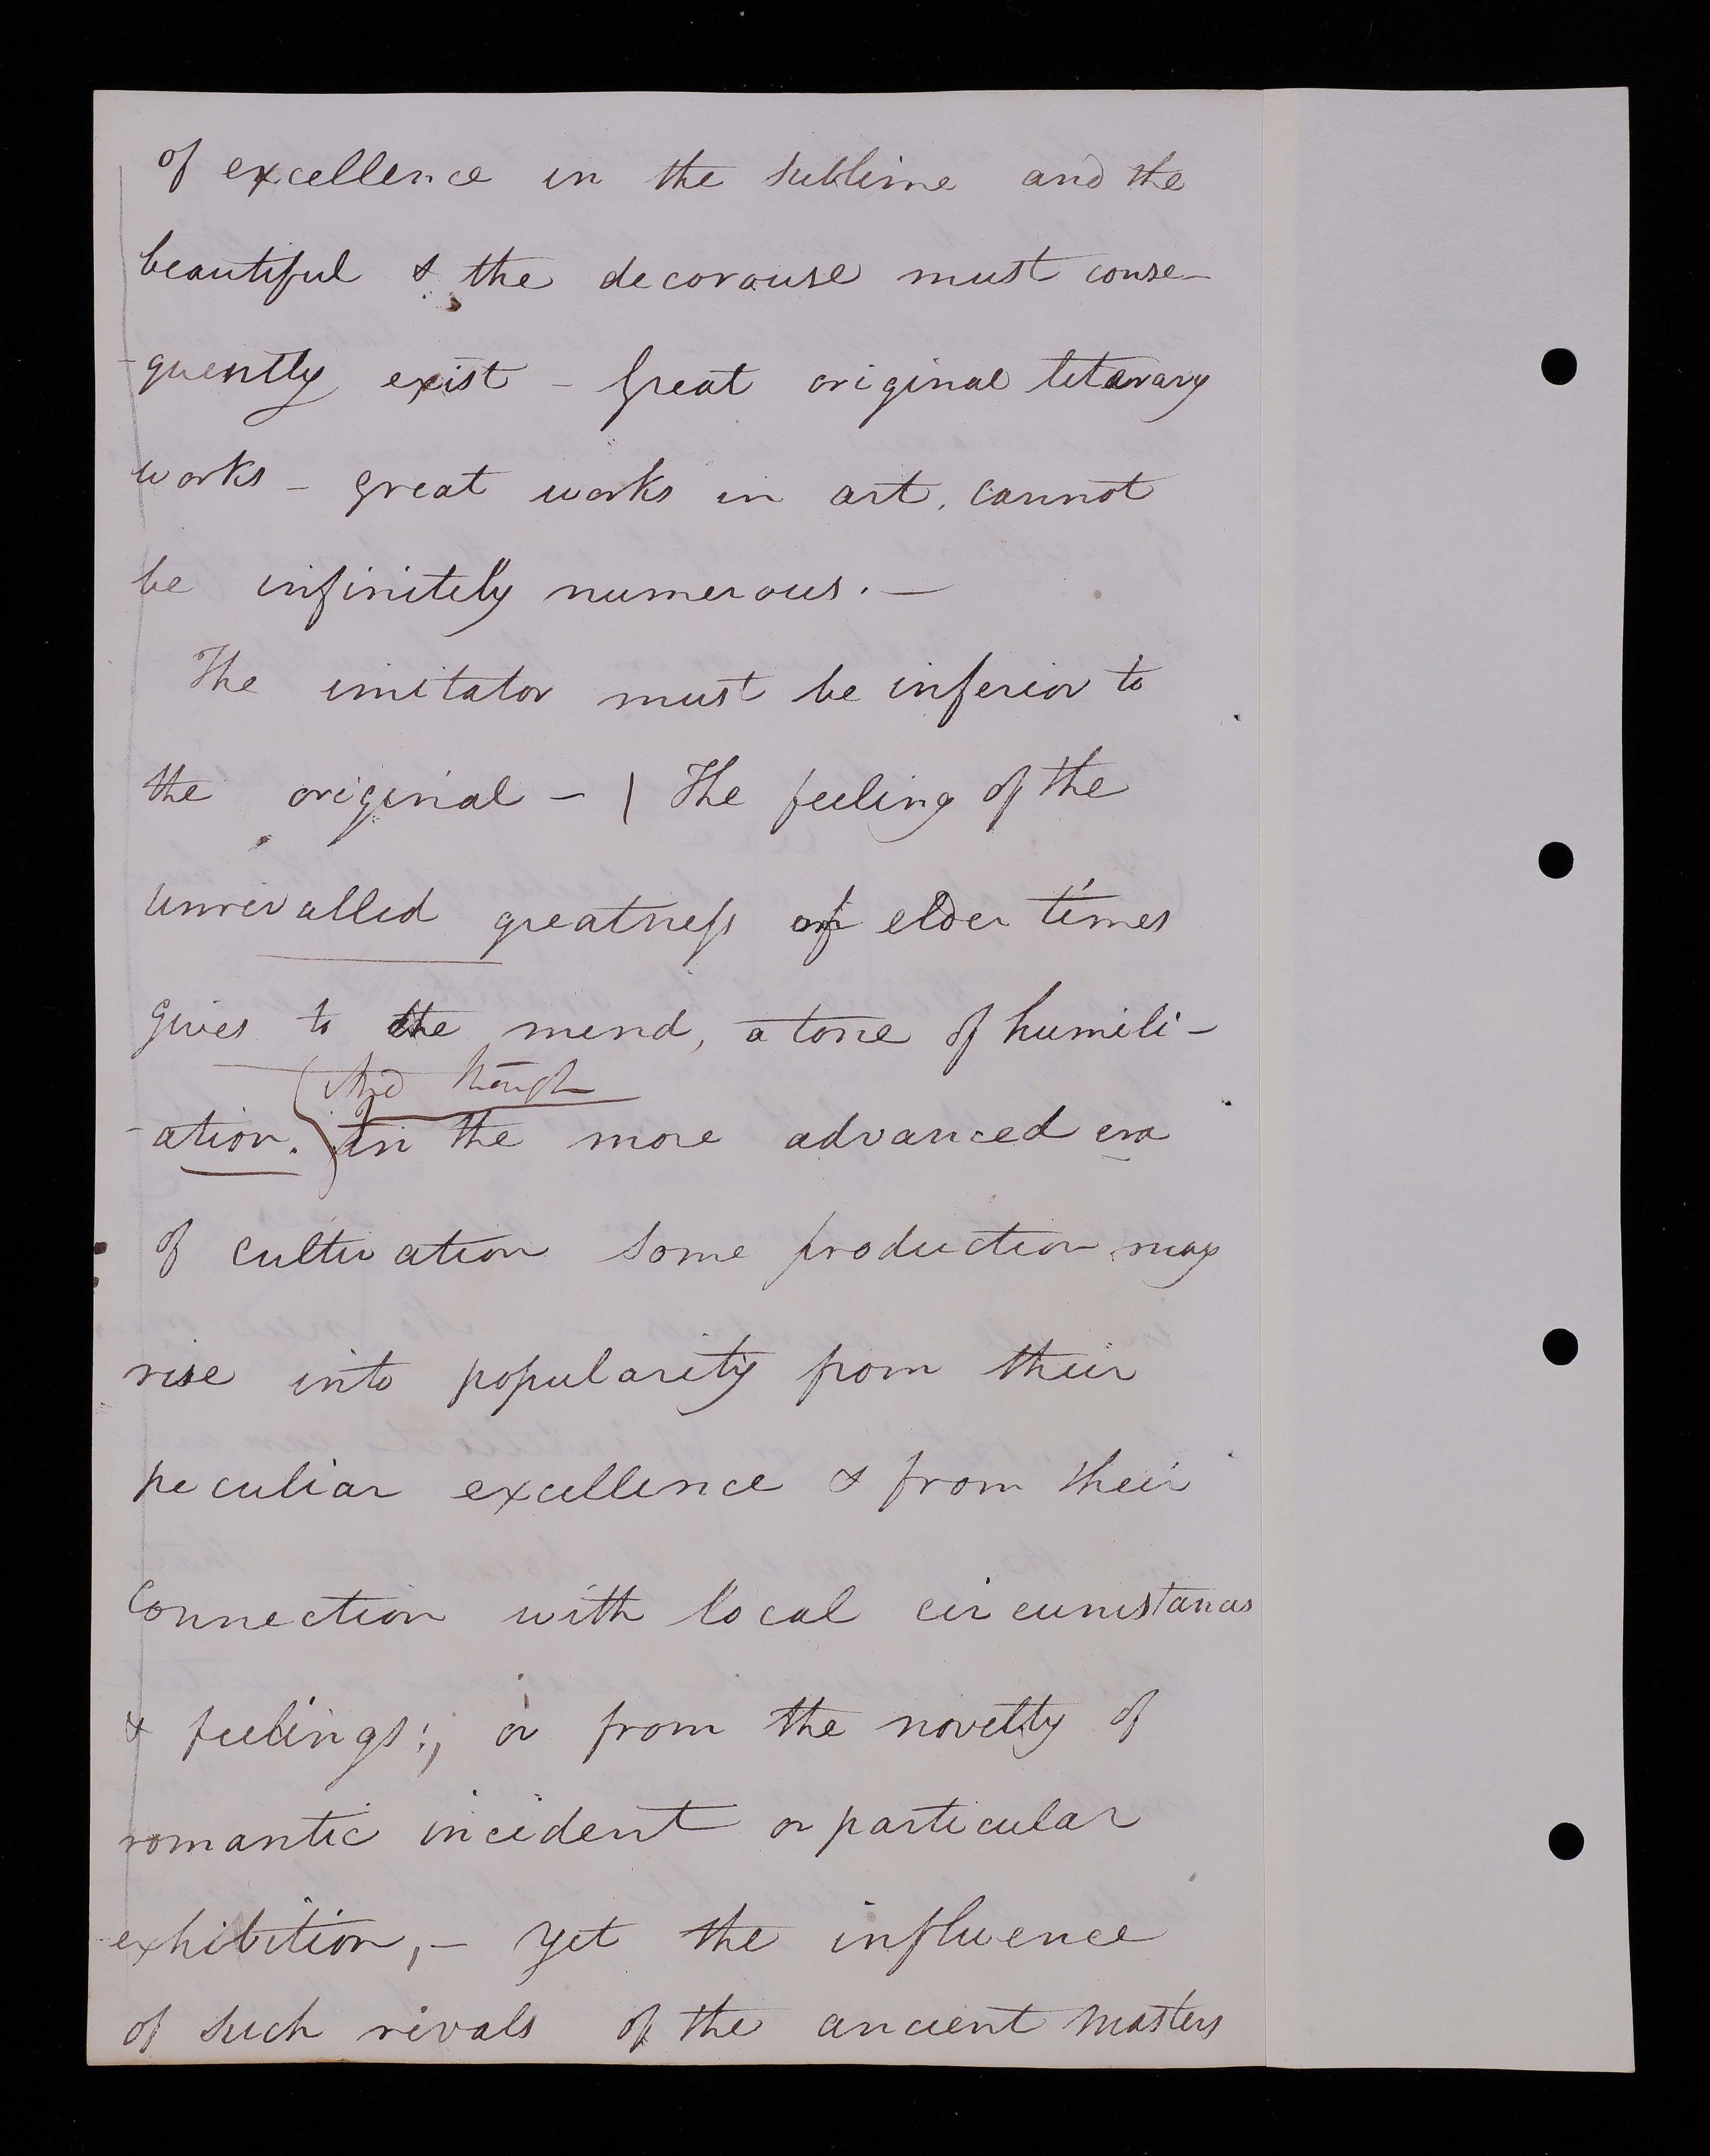 of excellence in the sublime and the
beautiful & the decorouse must conse-
-quently exist - Great original literary
works - great works in art, cannot
be infinitely numerous. -
The imitator must be inferior to
the original - | The feeling of the
unrivalled greatness of elder times
gives to the mind, a tone of humili-
And though
-ation. in the more advanced era
of cultivation some production may
rise into popularity from their
peculiar excellence & from their
connection with local circumstances
& feelings:, or from the novelty of
romantic incident or particular
exhibition, - yet the influence
of such rivals of the ancient masters